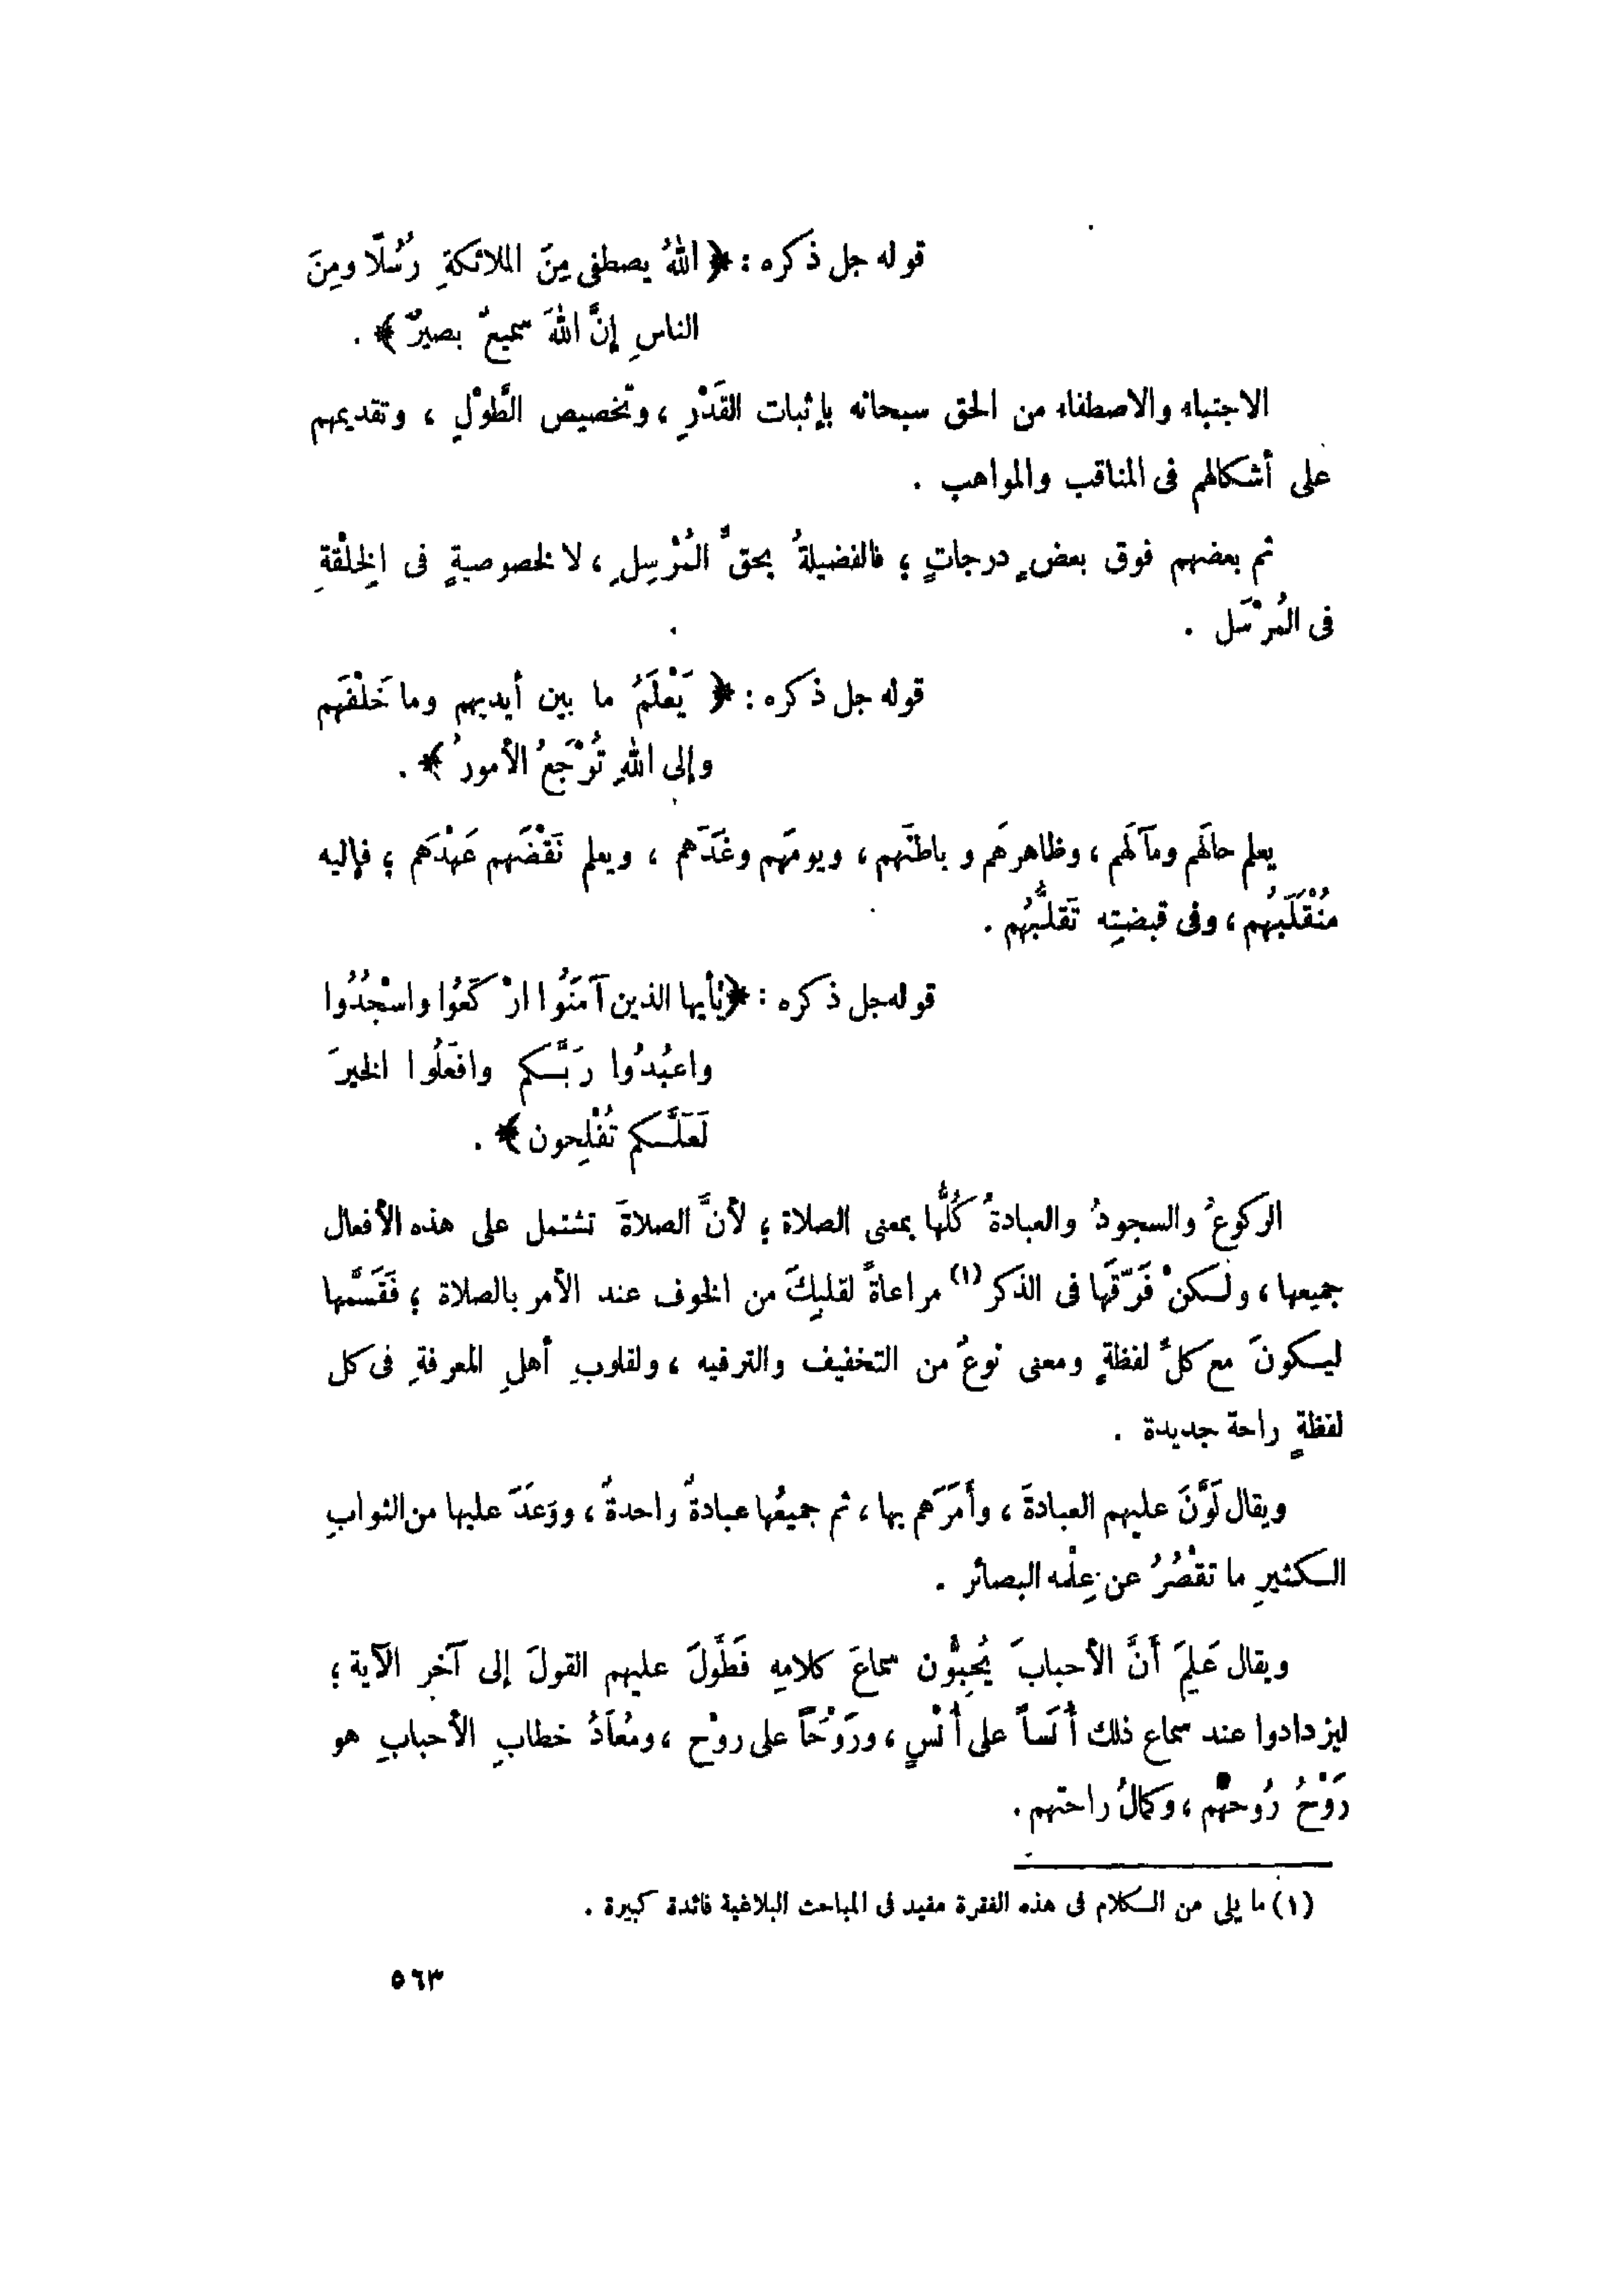 قوله جل ذكره : ﴿ اللهُ يصطفى مِنَ الملائكةِ رُسُلًا ومِنَ
الناسِ إنَّ اللهَ سميعٌ بصيرٌ ﴾ .
الاجتباء والاصطفاء من الحق سبحانه بإثبات القَدْرِ ، وتخصيص الطَّوْلِ ، وتقديمهم
على أشكالهم فى المناقب والمواهب .
ثم بعضهم فوق بعضٍ درجاتٍ ؛ فالفضيلةُ بحقِّ المُرْسِلِ ، لا لخصوصيةٍ فى الخِلْقةِ
فى المُرْسَل .
قوله جل ذكره : ﴿ يَعْلَمُ ما بين أيديهم وما خَلْفَهم
وإلى اللهِ تُرْجَعُ الأمورُ ﴾ .
يعلم حالَهم ومآلَهم ، وظاهرَهم وباطنَهم ، ويومَهم وغَدَهم ، ويعلم نَقْضَهم عَهْدَهم ؛ فإليه
مُنْقَلَبُهم ، وفى قبضتِه تَقلُّبُهم .
قوله جل ذكره : ﴿ يٰأيها الذين آمَنُوا ارْكَعُوا واسْجُدُوا
واعبُدُوا رَبَّكم وافعَلُوا الخيرَ
لَعَلَّكم تُفْلِحون ﴾ .
الركوعُ والسجودُ والعبادةُ كُلُّها بمعنى الصلاة ؛ لأنَّ الصلاةَ تشتمل على هذه الأفعال
جميعها ، ولكنْ فَرّقَها فى الذكر (١) مراعاةً لقلبِكَ من الخوف عند الأمر بالصلاة ؛ فَقَسَّمها
ليكونَ مع كلِّ لفظةٍ ومعنى نوعٌ من التخفيف والترفيه ، ولقلوبِ أهلِ المعرفةِ فى كل
لفظةٍ راحة جديدة .
ويقال لَوَّنَ عليهم العبادةَ ، وأَمَرَهم بها ، ثم جميعُها عبادةٌ واحدةٌ ، ووَعَدَ عليها من الثوابِ
الكثيرِ ما تقْصُرُ عن عِلْمه البصائر .
ويقال عَلِمَ أَنَّ الأحبابَ يُحِبُّون سماعَ كلامِه فَطَوَّلَ عليهم القولَ إلى آخر الآية ؛
ليزدادوا عند سماع ذلك أُنَساً على أُنْسٍ ، ورَوْحَاً على روْح ، ومُعَادُ خطابِ الأحبابِ هو
رَوْحُ رُوحِهم ، وكمالُ راحتهم .
(١) ما يلى من الكلام فى هذه الفقرة مفيد فى المباحث البلاغية فائدة كبيرة .
٥٦٣